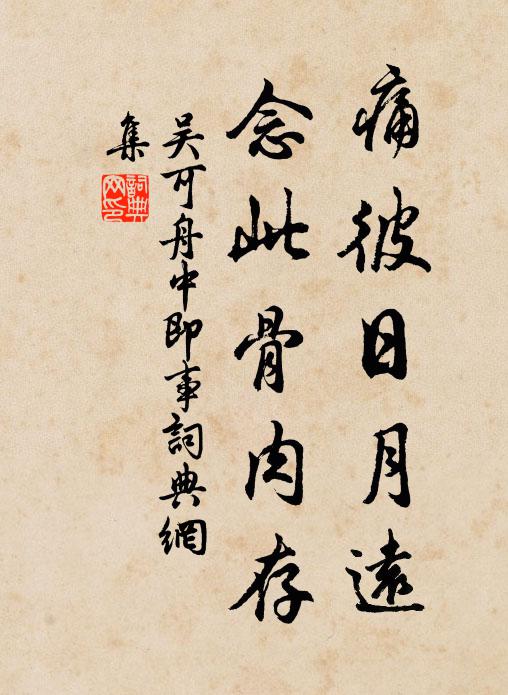 痛彼日月遠
念此骨肉存
吴可舟中即事詞典網
集
詞典
网印